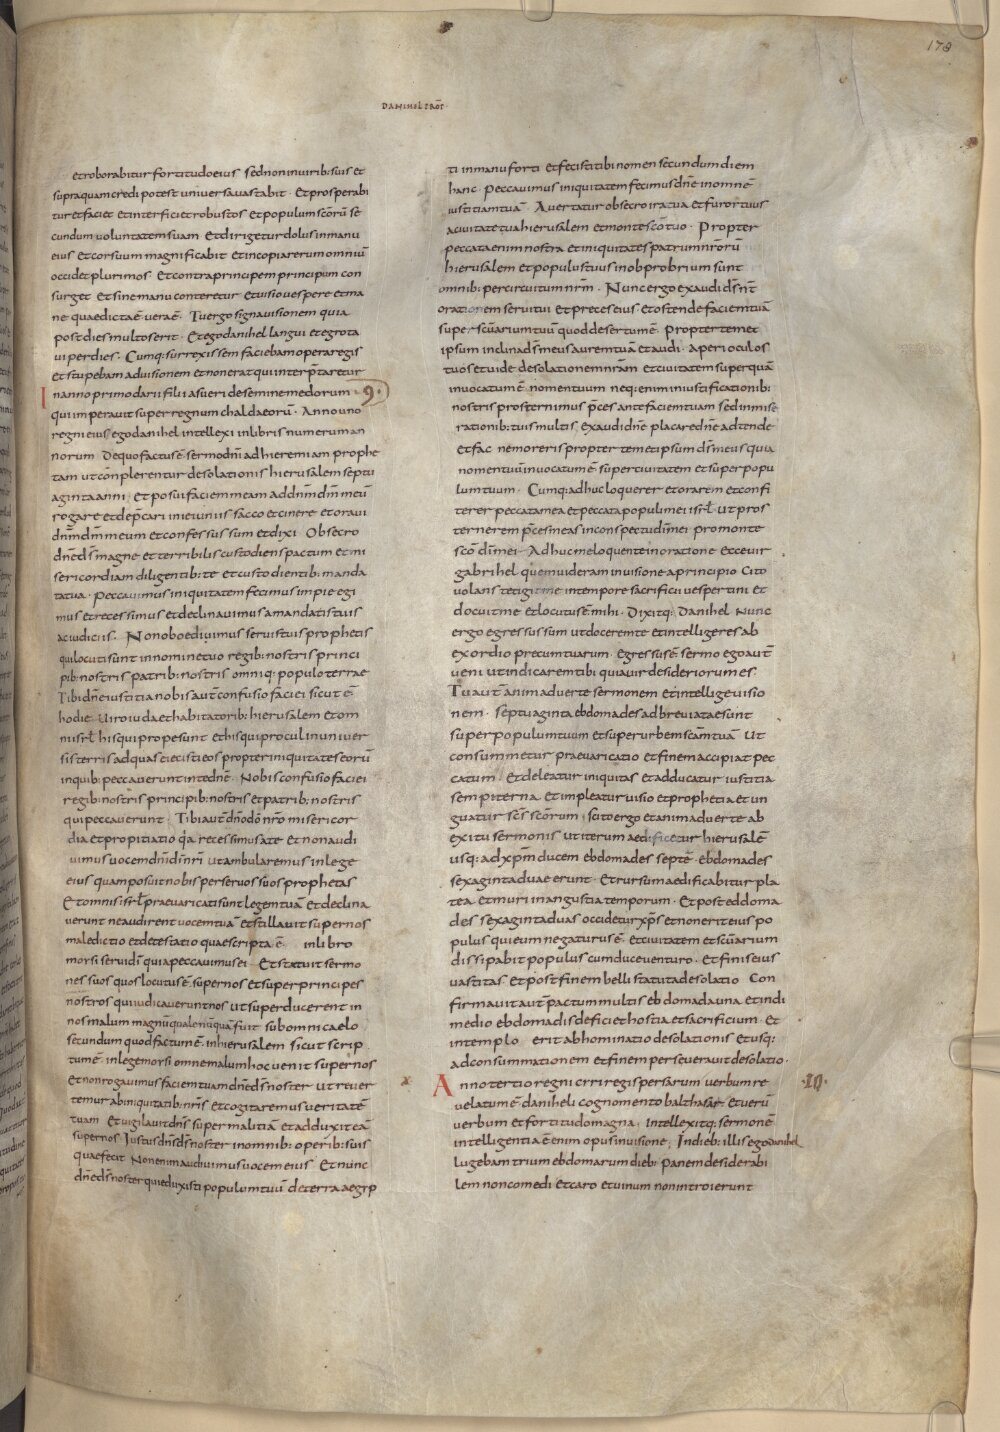 173
DANIHEL PROF
et roborabitur fortitudo eius sed non in uirib: suis et
supra quam credi potest uniuersa uastabit · Et prosperabi
tur et faciet et interficiet robustos et populum scōrū se
cundum uoluntatem suam Et dirigetur dolus in manu
eius Et cor suum magnificabit Et in copia rerum omniū
occidet plurimos Et contra principem principum con
surget Et sine manu conteretur Et uisio uespere et ma
ne quae dicta ē uera ē · Tu ergo signa uisionem quia
post dies multos erit · Et ego danihel langui et egrota
ui per dies · Cumq: surrexissem faciebam opera regis
et stupebam ad uisionem et non erat qui interpretaretur
In anno primo darii filii asueri de semine medorum · 9 ·
qui imperauit super regnum chaldaeorū · Anno uno
regni eius ego danihel intellexi in libris numerum an
norum De quo factus ē sermo dnī ad hieremiam prophe
tam ut conplerentur desolationis hierusalem septu
aginta anni · Et posui faciem meam ad dnm̄ dm̄ meū
rogare et dep̄cari in ieiuniis sacco et cinere et oraui
dnm̄ dm̄ meum et confessus sum et dixi Obsecro
dnē ds̄ magne et terribilis custodiens pactum et mi
sericordiam diligentib: te et custodientib: manda
ta tua · Peccauimus iniquitatem fecimus impie egi
mus et recessimus et declinauimus a mandatis tuis
ac iudiciis · Non oboediuimus seruis tuis prophetis
qui locuti sunt in nomine tuo regib: nostris princi
pib: nostris patrib: nostris omniq: populo terrae
Tibi dnē iustitia nobis aut̄ confusio faciei sicut ē
hodie · Uiro iuda et habitatorib: hierusalem et om
ni isrl̄ his qui prope sunt et his qui procul in uniuer
sis terris ad quas eiecisti eos propter iniquitates eorū
in quib: peccauerunt in te dnē · Nobis confusio faciei
regib: nostris principib: nostris et patrib: nostris
qui peccauerunt · Tibi aut̄ dnō dō nrō misericor
dia et propitiatio qa recessimus a te et non audi
uimus uocem dnī dī nrī ut ambularemus in lege
eius quam posuit nobis per seruos suos prophetas
Et omnis isrl̄ praeuaricati sunt legem tuā Et declina
uerunt ne audirent uocem tuā et stillauit super nos
maledictio et detestatio quae scripta ē in libro
morsi serui dī quia peccauimus ei Et statuit sermo
nes suos quos locutus ē super nos et super principes
nostros qui iudicauerunt nos ut superducerent in
nos malum magnū quale nūquā fuit sub omni caelo
secundum quod factum ē in hierusalem sicut scrip
tum ē in lege morsi omne malum hoc uenit super nos
et non rogauimus faciem tuam dnē ds̄ noster ut reuer
temur ab iniquitatib: nrīs et cogitaremus ueritatē
tuam Et uigilauit dns̄ super malitiā et adduxit eā
super nos Iustus dns̄ ds̄ noster in omnib: operib: suis
quae fecit Non enim audiuimus uocem eius Et nunc
dnē ds̄ noster qui eduxisti populum tuū de terra aegyp
ti in manu forti et fecisti tibi nomen secundum diem
hanc · Peccauimus iniquitatem fecimus dnē in omnē
iustitiam tuā · Auertatur obsecro ira tua et furor tuus
a ciuitate tua hierusalem et monte scō tuo · Propter
peccata enim nostra et iniquitates patrum nrōrū
hierusalem et populus tuus in obprobrium sunt
omnib: per circuitum nrm̄ · Nunc ergo exaudi ds̄ nr̄
orationem serui tui et preces eius et ostende faciem tuā
super scūarium tuū quod desertum ē · Propter temet
ipsum inclina ds̄ meus aurem tuā et audi · Aperi oculos
tuos et uide desolationem nram̄ et ciuitatem super quā
inuocatum ē nomen tuum neq: enim in iustificationib:
nostris prosternimus p̄ces ante faciem tuam sed in mise
rationib: tuis multis exaudi dnē placare dnē adtende
et fac ne moreris propter temetipsum ds̄ meus quia
nomen tuū inuocatum ē super ciuitatem et super popu
lum tuum · Cumq: adhuc loquerer et orarem et confi
terer peccata mea et peccata populi mei isrl̄ ut pros
ternerem p̄ces meas in conspectu di mei pro monte
scō dī mei · Adhuc me loquente in oratione Ecce uir
gabrihel quem uideram in uisione a principio Cito
uolans tetigit me in tempore sacrificii uespertini et
docuit me et locutus ē mihi · Dixitq: danihel nunc
ergo egressus sum ut docerem te et intelligeres ab
exordio precum tuarum · Egressus ē sermo ego aut̄
ueni ut indicarem tibi quia uir desideriorum es ·
Tu aut̄ animaduerte sermonem et intellege uisio
nem · Septuaginta ebdomades adbreuiatae sunt
super populum tuum et super urbem scām tuā Ut
consummetur praeuaricatio et finem accipiat pec
catum · Et deleatur iniquitas et adducatur iustitia
sempiterna Et impleatur uisio et prophetia et un
guatur scs̄ scōrum · Scito ergo et animaduerte ab
exitu sermonis ut iterum aedificetur hierusalē
usq: ad xpm̄ ducem ebdomades septē · ebdomades
sexaginta duae erunt · Et rursum aedificabitur pla
tea et muri in angustia temporum · Et post eddoma
des sexaginta duas occidetur xps̄ et non erit eius po
pulus qui eum negaturus ē Et ciuitatem et scūarium
dissipabit populus cum duce uenturo · Et finis eius
uastitas Et post finem belli statuta desolatio Con
firmauit aut̄ pactum multis ebdomada una et in di
medio ebdomadis deficiet hostia et sacrificium Et
in templo erit abhominatio desolationis Et usq:
ad consummationem et finem perseuerauit desolatio ·
Anno tertio regni cyri regis persarum uerbum re · 10 ·
uelatum ē daniheli cognomento balthasar Et uerū
uerbum et fortitudo magna · intellexitq: sermonē
intelligentia ē enim opus in uisione ; In dieb: illis ego danihel
lugebam trium ebdomarum dieb: Panem desiderabi
lem non comedi et caro et uinum non introierunt